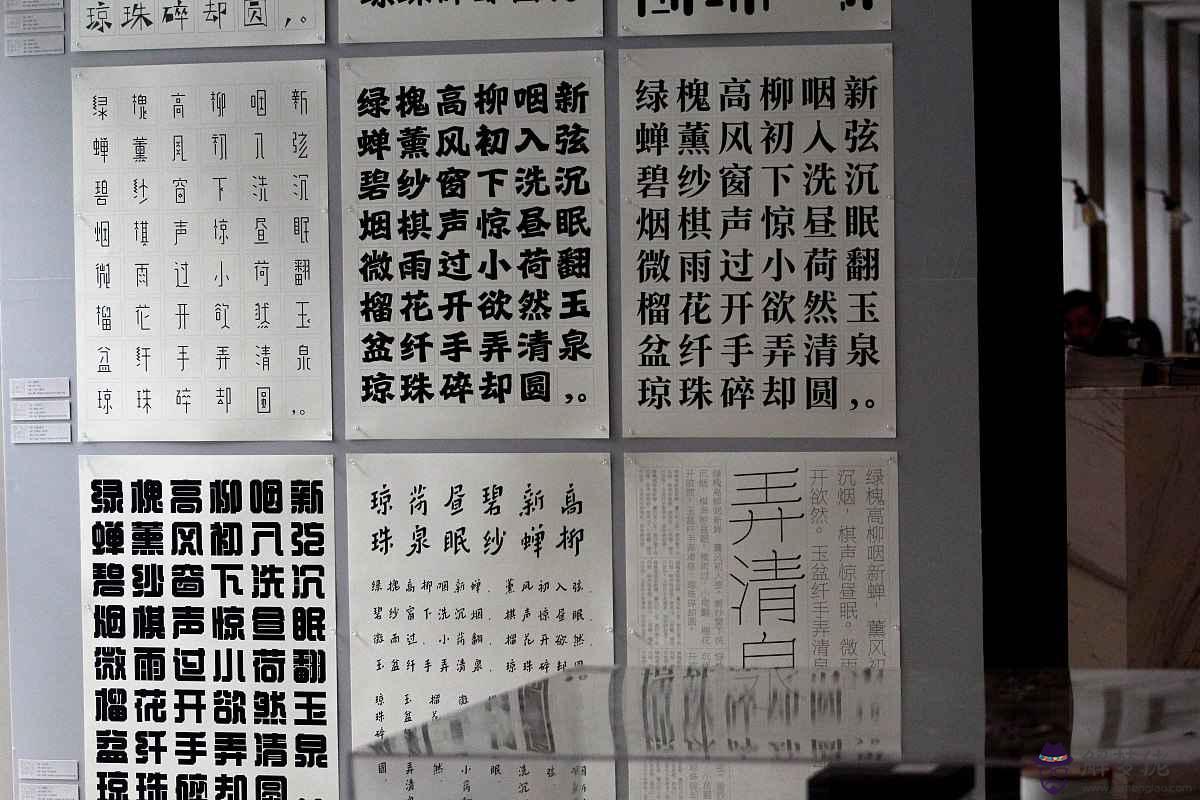 琼珠碎却圆,。
绿槐高柳咽新
蝉薰风初入弦
碧纱窗下洗沉
烟棋声惊昼眠
微雨过小荷翻
榴花开欲然玉
盆纤手弄清泉
琼珠碎却圆,。
绿槐高柳咽新
蝉薰风初入弦
碧纱窗下洗沉
烟棋声惊昼眠
微雨过小荷翻
榴花开欲然玉
盆纤手弄清泉
琼珠碎却圆,。
绿槐高柳咽新
蝉薰风初入弦
碧纱窗下洗沉
烟棋声惊昼眠
微雨过小荷翻
榴花开欲然玉
盆纤手弄清泉
琼珠碎却圆,。
绿槐高柳咽新
蝉薰风初入弦
碧纱窗下洗沉
烟棋声惊昼眠
微雨过小荷翻
榴花开欲然玉
盆纤手弄清泉
琼珠碎却圆,。
琼荷昼碧新高
珠泉眠纱蝉柳
绿槐高柳咽新蝉。薰风初入弦。
碧纱窗下洗沉烟。棋声惊昼眠。
微雨过。小荷翻。榴花开欲然。
玉盆纤手弄清泉。琼珠碎却圆
绿槐高柳咽新蝉,薰风初
沉烟,棋声惊昼眠。微雨
开欲然。玉盆纤手弄清泉
弄清泉